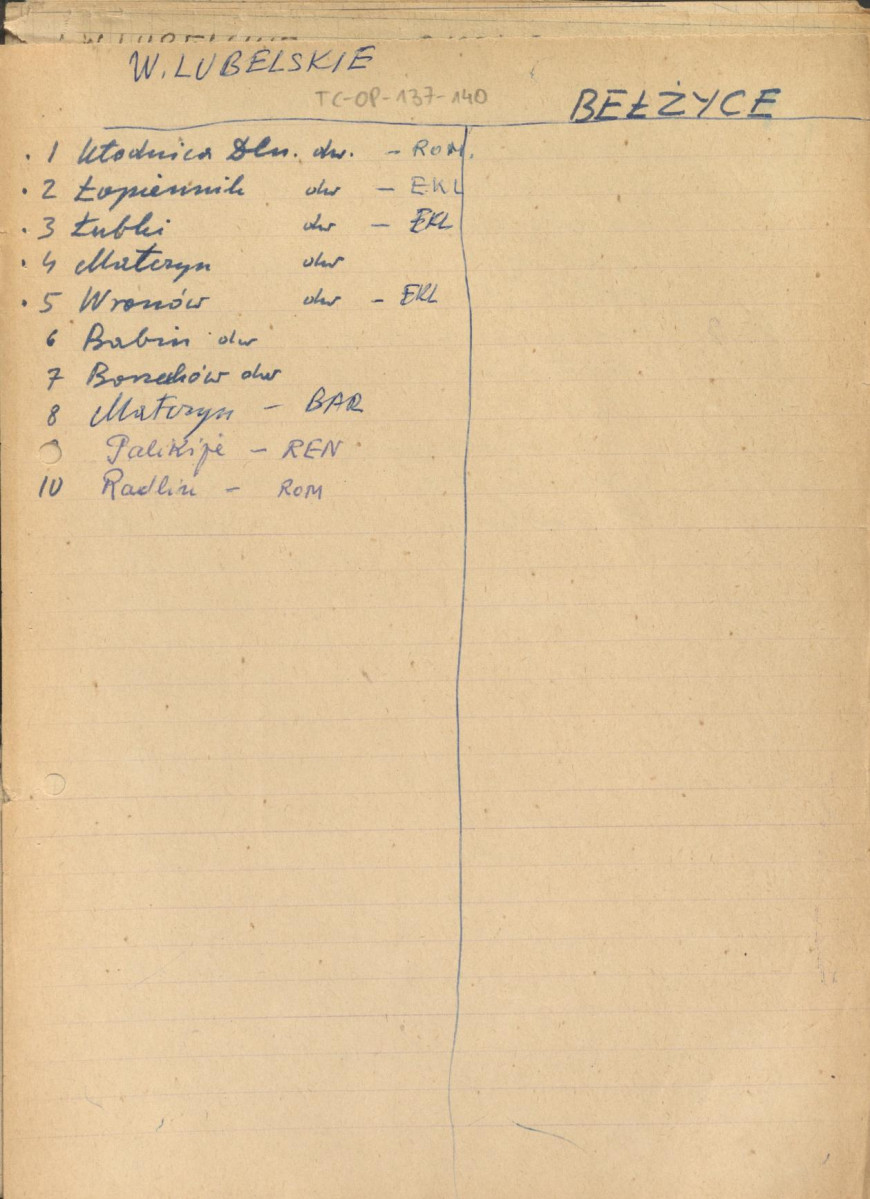 W. LUBELSKIE
TC-OP-137-140
BEŁŻYCE
1 Kłodnica Dln. dw. - ROM.
2 Łopiennik dw - EKL
3 Łubki dw - EKL
4 Matczyn dw
5 Wronów dw - EKL
6 Babin dw
7 Borzechów dw
8 Matczyn - BAR
9 Palikije - REN
10 Radlin - ROM